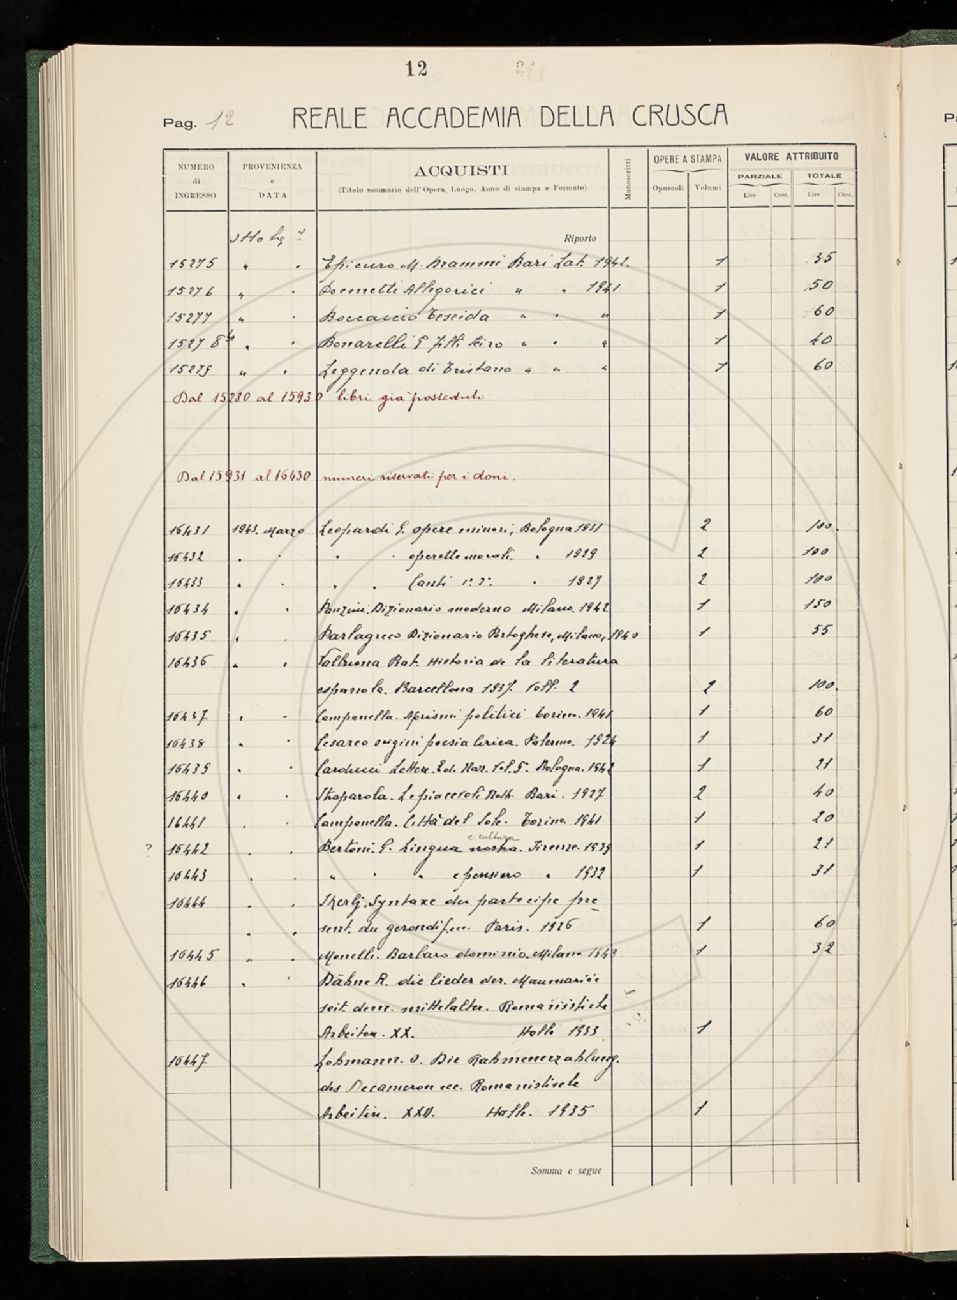 12
Pag. 12 REALE ACCADEMIA DELLA CRUSCA
NUMERO di INGRESSO
PROVENIENZA e DATA
ACQUISTI
(Titolo sommario dell'Opera, Luogo, Anno di stampa e Formato)
Manoscritti
OPERE A STAMPA
Opuscoli Volumi
VALORE ATTRIBUITO
PARZIALE TOTALE
Lire Cent. Lire Cent.
Riporto
15275 " " Epicuro M. Drammi Bari Lat. 1942. 1 35
15276 " " Poemetti Allegorici " " 1941 1 50
15277 " " Boccaccio Teseida " " " 1 60
15278 " " Bonarelli G Filli Sciro " " " 1 40
15279 " " Leggenda di Tristano " " " 1 60
Dal 15280 al 15930 libri già posseduti
Dal 15931 al 16430 numeri riservati per i doni.
16431 1943. Marzo Leopardi G. opere minori, Bologna 1931 2 100.
16432 " " " " operette morali. " 1929 2 100
16433 " " " " Canti 1°. 2°. " 1927 2 100
16434 " " Panzini. Dizionario moderno Milano. 1942 1 150
16435 " " Parlagreco Dizionario Portoghese, Milano, 1940 1 55
16436 " " Valbuena Prat. Historia de la literatura
espanola. Barcellona 1937. Voll. 2 2 100.
16437 " " Campanella. Aforismi politici Torino. 1941 1 60
16438 " " Cesareo origini poesia lirica. Palermo. 1924 1 31
16439 " " Carducci Lettere. Ed. Naz. Vol. 5°. Bologna. 1942 1 21
16440 " " Straparola. Le piacevoli Nott. Bari. 1927 2 40
16441 " " Campanella. Città del Sole. Torino. 1941 1 20
e cultura
? 16442 " " Bertoni. G. Lingua nostra. Firenze. 1939 1 21
16443 " " " " " e pensiero " 1932 1 31
16444 " " Skerlj. Syntaxe du participe pre=
" " sent. du gerondif. ecc. Paris. 1926 1 60
16445 " " Monelli. Barbaro dominio. Milano 1943 1 32
16446 " " Dähne R. die lieder der. Maumariée
seit dem. mittelalter. Romanistiche
Arbeiten. XX. Halle 1933 1
16447 Lohmann. O. Die Rahmenerzahlung.
des Decameron ecc. Romanistische
Arbeiten. XXII. Halle. 1935 1
Somma e segue